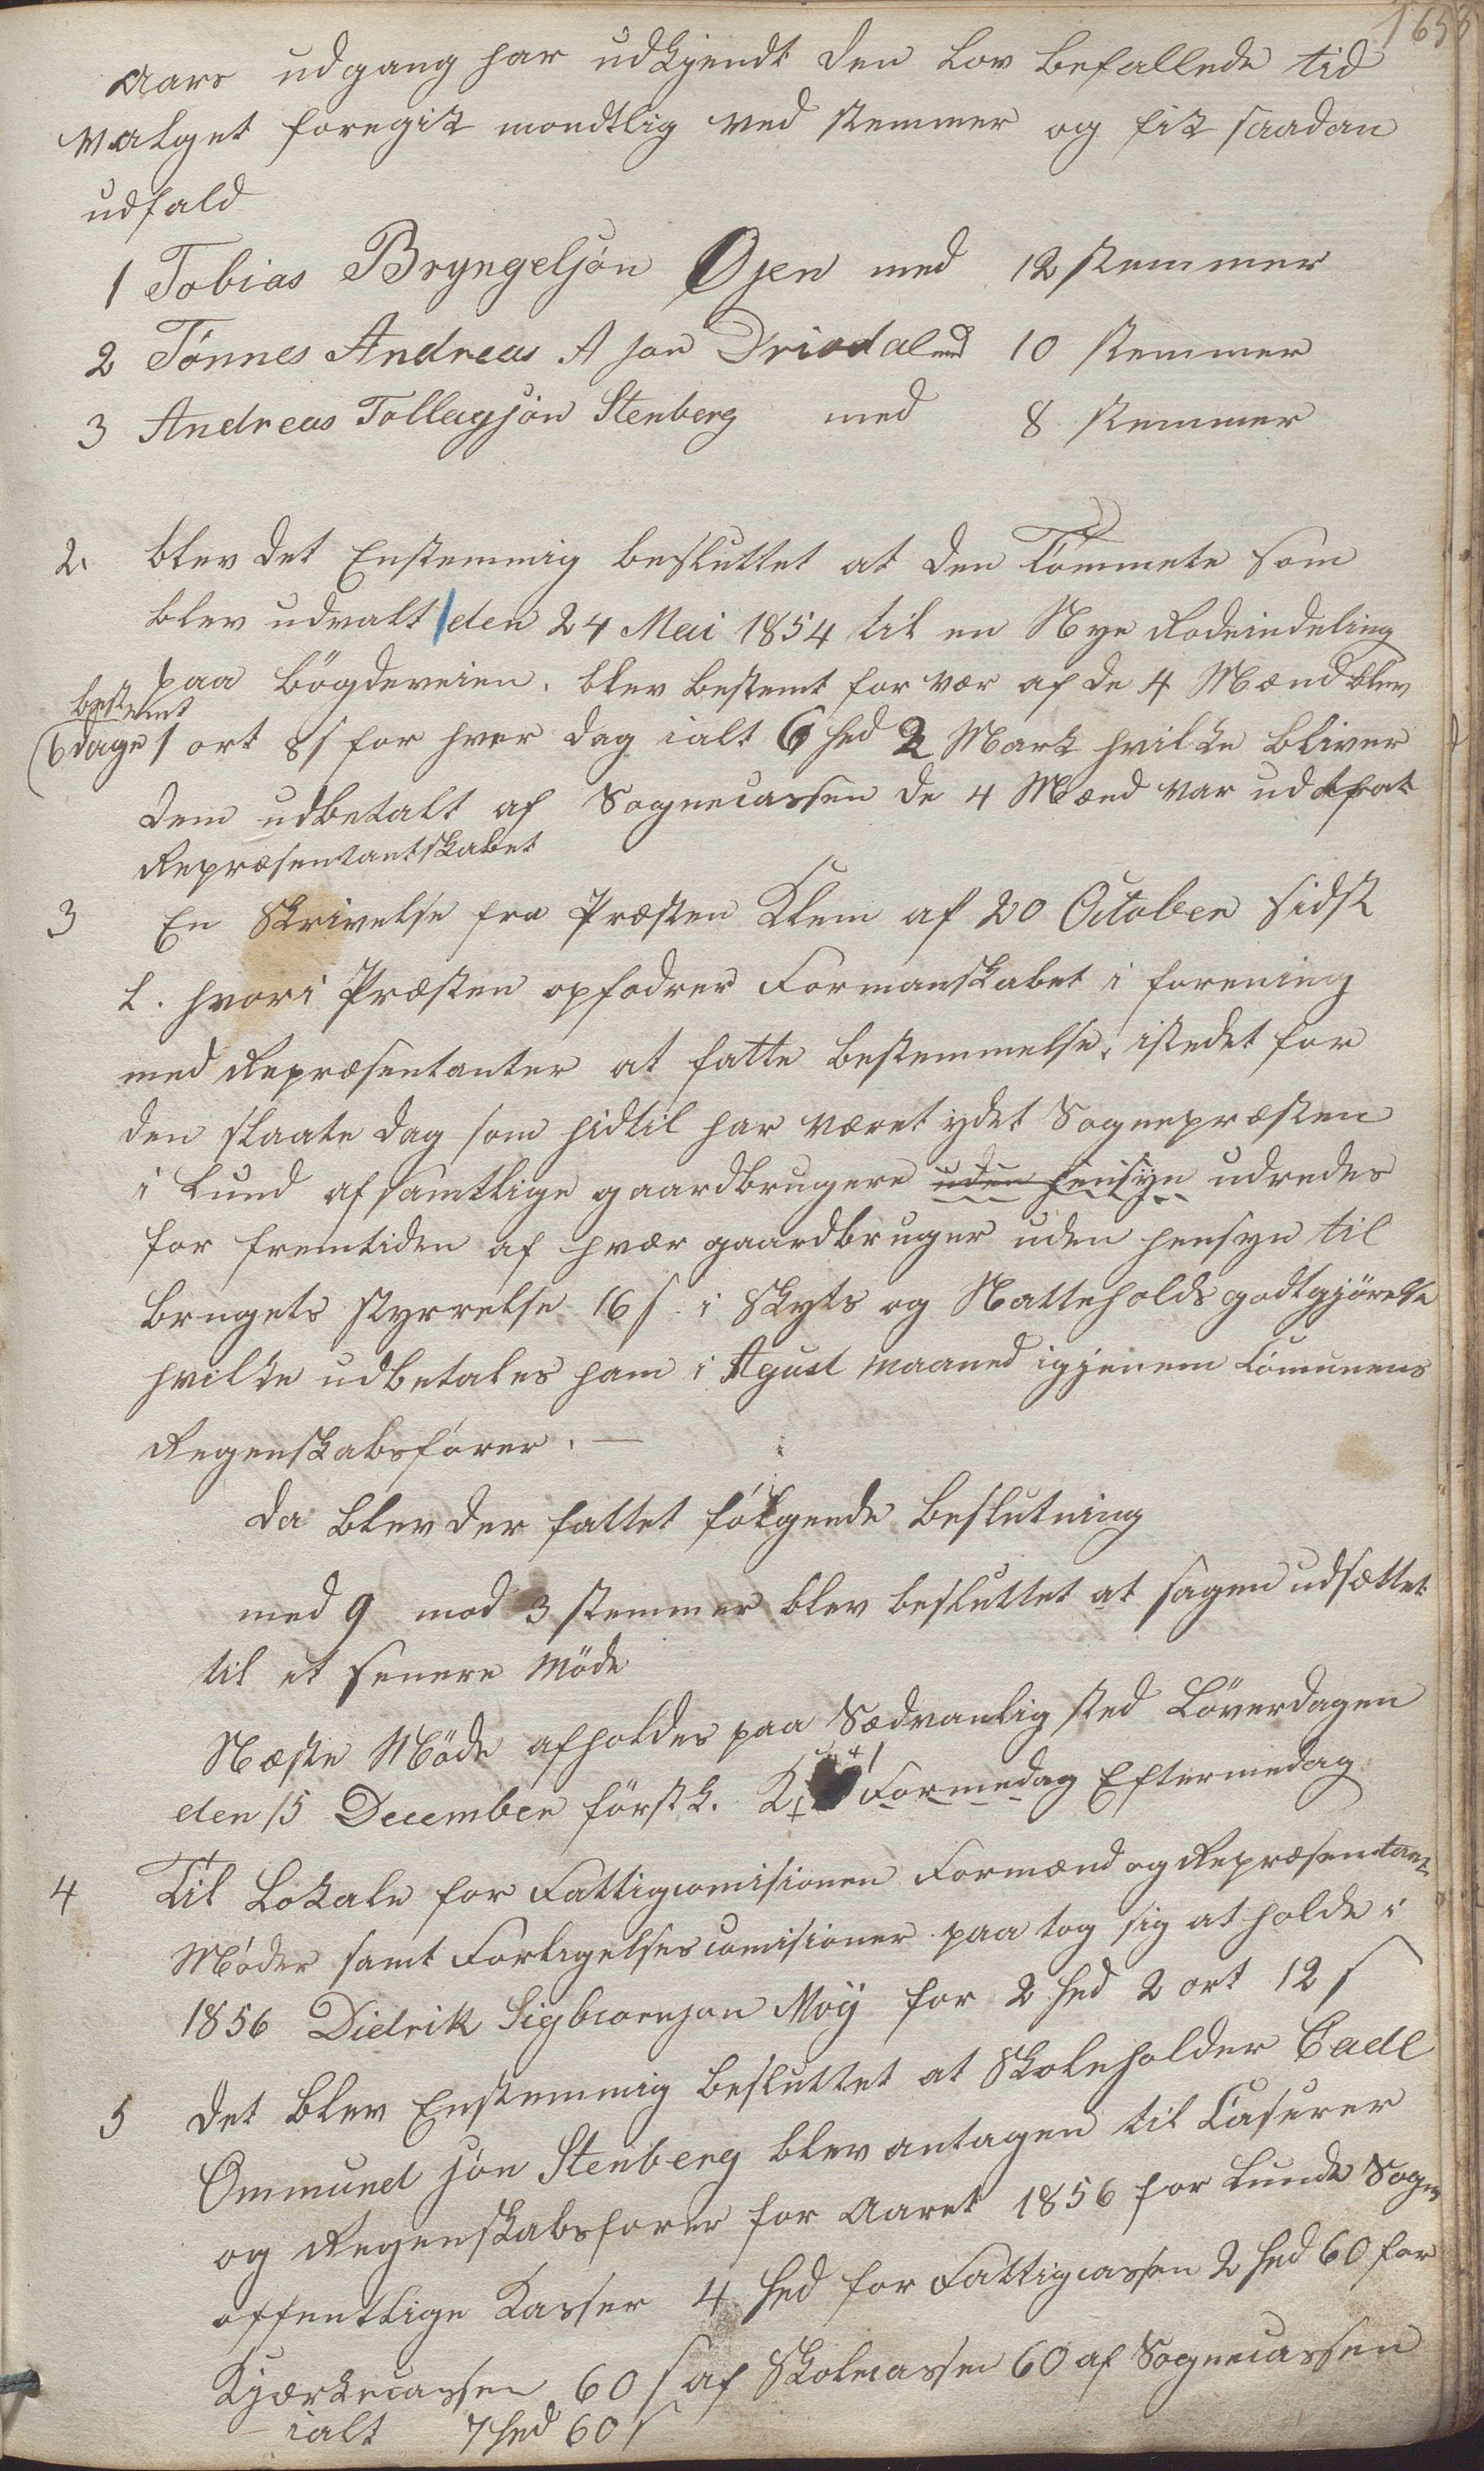 165
aars udgang har udkjendt den Lov befallede tid
valget foregik mondtlig ved stemmer og fik saadan
udfald
1 Tobias Bryngeljøn Øjen med 12 stemmer
2 Tønnes Andreas A jon Driodal med 10 stemmer
3 Andreas Tollagjøn Stenberg med 8 stemmer
2. blev det Enstemmig besluttet at den Commete som
blev udvalt den 24 Mai 1854 til en Nye Rodeindeling
paa bögdeveien. blev bestemt for vær af de 4 Mænd blev
bestemt
6 dage 1 ort 8 s for hver dag ialt 6 spd 2 Mark hvilke bliver
dem udbetalt af Sognecassen de 4 Mænd var
Repræsentantskabet
3 En Skrivelse fra Præsten Klem af 20 October sidst
l. hvori Præsten opfodrer Formanskabet i forening
med Repræsentanter at fatte bestemmelse, istedet for
den slaate dag som hidtil har været ydet Sognepræsten
i Lund af samtlige gaardbrugere uden hensyn udredes
for fremtiden af hvær gaardbruger uden hensyn til
brugets styrrelse 16 s. i Skyts og Natteholds godtgjörelse
hvilke udbetales ham i Agust maaned igjenem Comunens
Regenskabsfører. —
da blev der fattet følgende beslutning
med 9 mod 3 stemmer blev besluttet at sagen udsættet
til et senere Möde
Næste Möde afholdes paa Sædvanlig sted Löverdagen
den 15 December först k. Kl Formedag Eftermedag
4 Til Lokale for Fattigcomisionen Formænd og Repræsentant
Møder samt Forligelsescomisioner paa tog sig at holde i
1856 Didrik Sigbiørnjon Moÿ for 2 spd 2 ort 12 s
5 det blev Enstemmig besluttet at Skoleholder Cadl
Ommund jøn Stenberg blev antagen til Caserer
og Regenskabsfører for Aaret 1856 for Lunde Sogn
offentlige Kasser 4 spd for Fattigcassen 2 spd 60 for
Kjærkecassen 60 s af Skolecassen 60 af Sognecassen
- ialt 7 spd 60 s